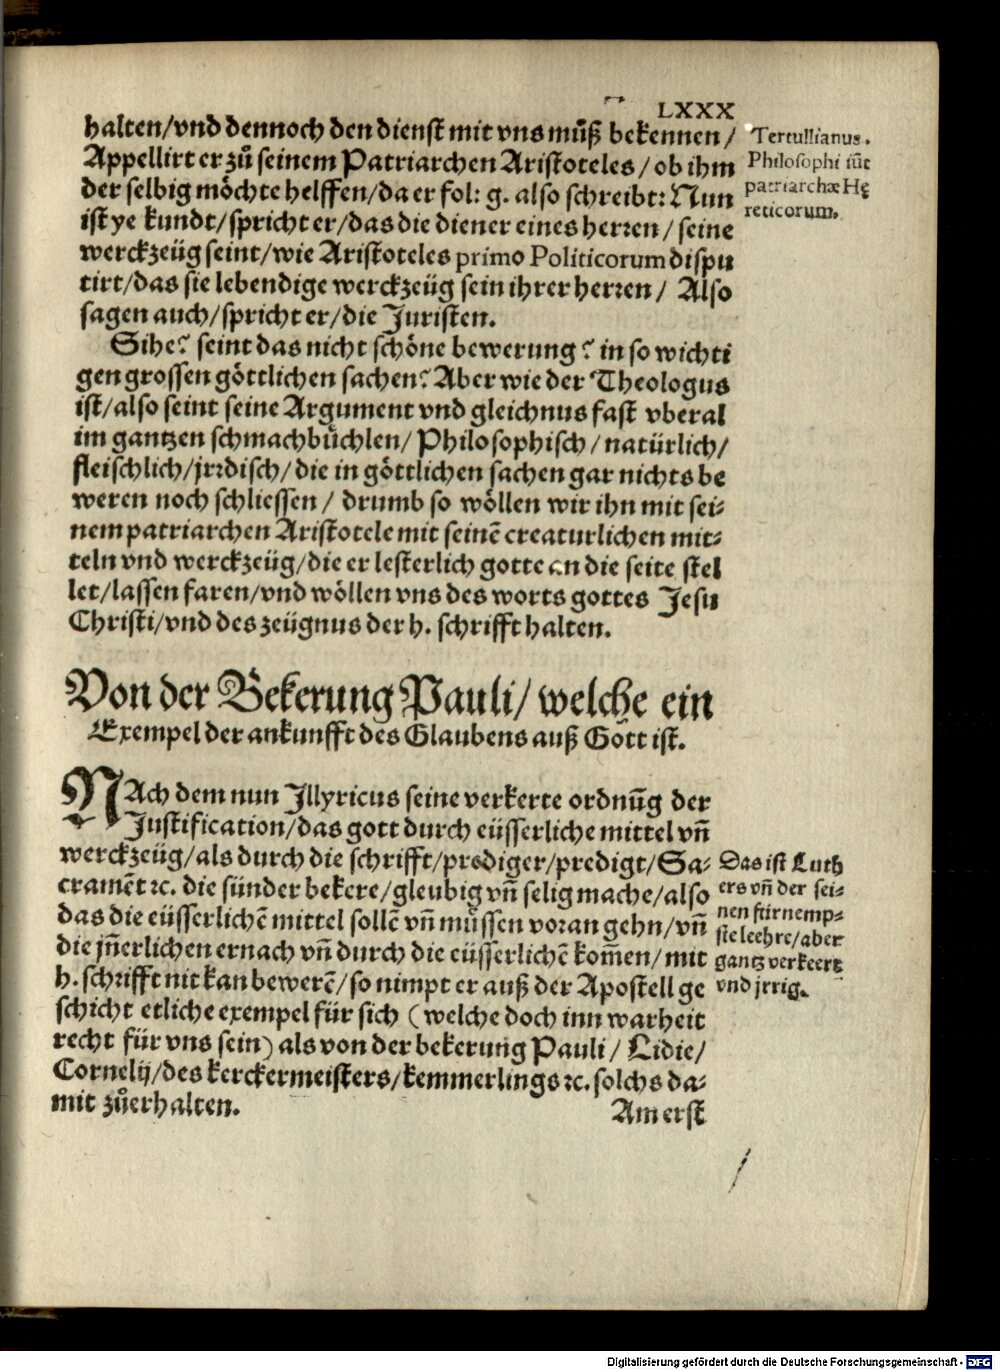 LXXX
halten/vnd dennoch den dienst mit vns můß bekennen/
Appellirt er zů seinem Patriarchen Aristoteles/ob ihm
der selbig möchte helffen/da er fol: g. also schreibt: Nun
ist ye kundt/spricht er/das die diener eines herren/seine
werckzeüg seint/wie Aristoteles primo Politicorum dispu
tirt/das sie lebendige werckzeüg sein ihrer herren/ Also
sagen auch/spricht er/die Juristen.
Tertullianus.
Philosophi sũt
patriarchæ Hę
reticorum.
Sihe? seint das nicht schöne bewerung? in so wichti
gen grossen göttlichen sachen? Aber wie der Theologus
ist/also seint seine Argument vnd gleichnus fast vberal
im gantzen schmachbüchlen/ Philosophisch/natürlich/
fleischlich/jrrdisch/die in göttlichen sachen gar nichts be
weren noch schliessen/ drumb so wöllen wir ihn mit sei-
nem patriarchen Aristotele mit seinē creaturlichen mit-
teln vnd werckzeüg/die er lesterlich gotte an die seite stel
let/lassen faren/vnd wöllen vns des worts gottes Jesu
Christi/vnd des zeügnus der h. schrifft halten.
Von der Bekerung Pauli/ welche ein
Exempel der ankunfft des Glaubens auß Gott ist.
NAch dem nun Illyricus seine verkerte ordnūg der
Justification/das gott durch eüsserliche mittel vñ
werckzeüg/als durch die schrifft/prediger/predigt/Sa-
cramēt ꝛc. die sünder bekere/gleubig vñ selig mache/also
das die eüsserlichē mittel sollē vñ müssen voran gehn/vñ
die jñerlichen ernach vñ durch die eüsserlichē kom̄en/mit
h. schrifft nit kan bewerē/so nimpt er auß der Apostell ge
schicht etliche exempel für sich (welche doch inn warheit
recht für vns sein) als von der bekerung Pauli/ Lidie/
Cornelij/des kerckermeisters/kemmerlings ꝛc. solchs da-
mit zůerhalten.
Das ist Luth
ers vñ der sei-
nen fürnemp-
ste leehre/aber
gantz verkeert
vnd jrrig.
Am erst
Digitalisierung gefördert durch die Deutsche Forschungsgemeinschaft - DFG